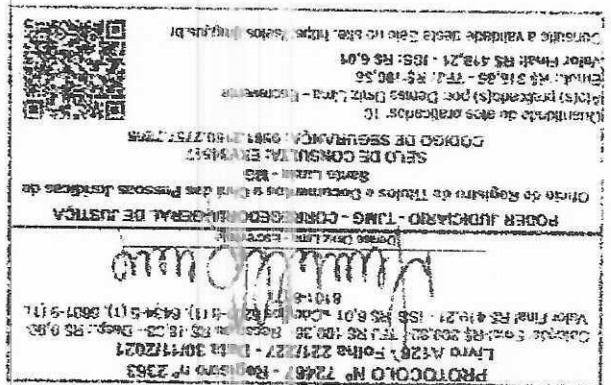 PROTOCOLO Nº 72467 - Registro nº 2363
Livro A126, Folha 221/227 - Data 30/11/2021
Cotação: Emol: R$ TFJ R$ 100,36 - Recompe R$ 18,03 - Desp.: R$ 0,00
Valor Final R$ 419,21 - ISS R$ 6,01 - 6434-5 (1), 6601-9 (1),
8101-8
Denise Ortiz Lima - Escrevente
PODER JUDICIÁRIO - TJMG - CORREGEDORIA GERAL DE JUSTIÇA
Ofício do Registro de Títulos e Documentos e Civil das Pessoas Jurídicas de
Santa Luzia - MG
SELO DE CONSULTA:
CÓDIGO DE SEGURANÇA:
Quantidade de atos praticados: 10
Ato(s) praticado(s) por: Denise Ortiz Lima - Escrevente
Emol.: R$ 318,85 - TFJ: R$ 100,36
Valor Final: R$ 419,21 - ISS: R$ 6,01
Consulte a validade deste Selo no site: https://selos.tjmg.jus.br